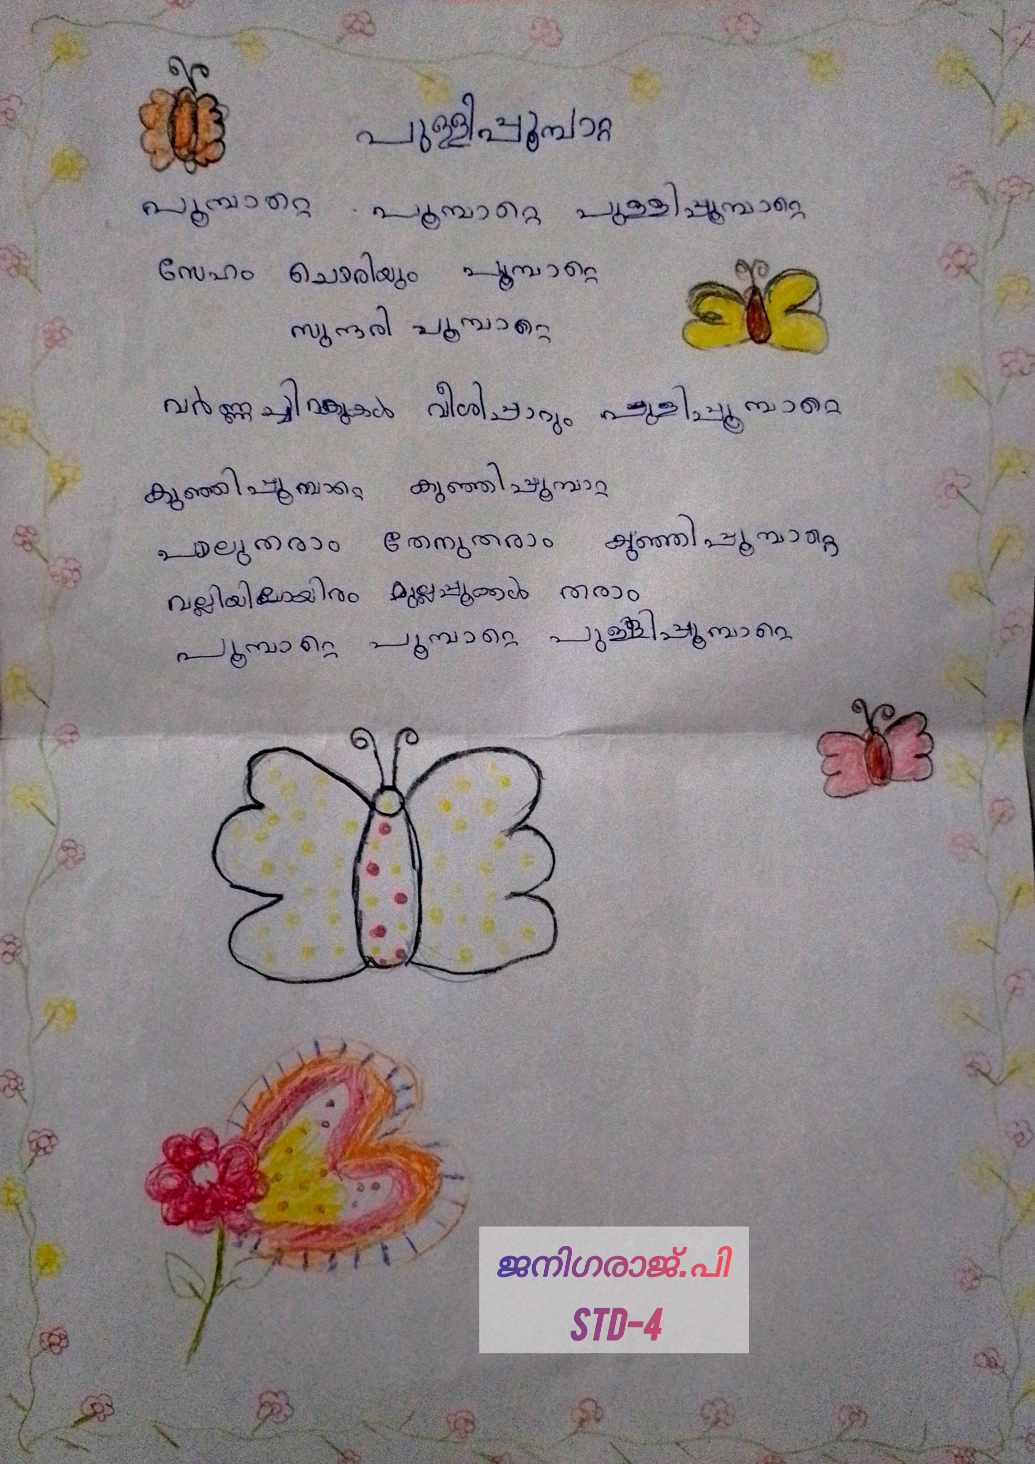 പുള്ളിപ്പൂമ്പാറ്റ
പൂമ്പാറ്റെ പൂമ്പാറ്റെ പുള്ളിപ്പൂമ്പാറ്റെ
സേഹം ചൊരിയും പൂമ്പാറ്റെ
സുന്ദരി പൂമ്പാറ്റെ
വർണ്ണച്ചിറകുകൾ വീശിപ്പാറും പുള്ളിപ്പൂമ്പാറ്റെ
കുഞ്ഞിപ്പൂമ്പാറ്റെ കുഞ്ഞിപ്പൂമ്പാറ്റ
പാലുതരാം തേനുതരാം കുഞ്ഞിപ്പൂമ്പാറ്റെ
വല്ലിയിലായിരം മുല്ലപ്പൂക്കൾ തരാം
പൂമ്പാറ്റെ പൂമ്പാറ്റെ പുള്ളിപ്പൂമ്പാറ്റെ
ജനിഗരാജ്.പി
STD-4